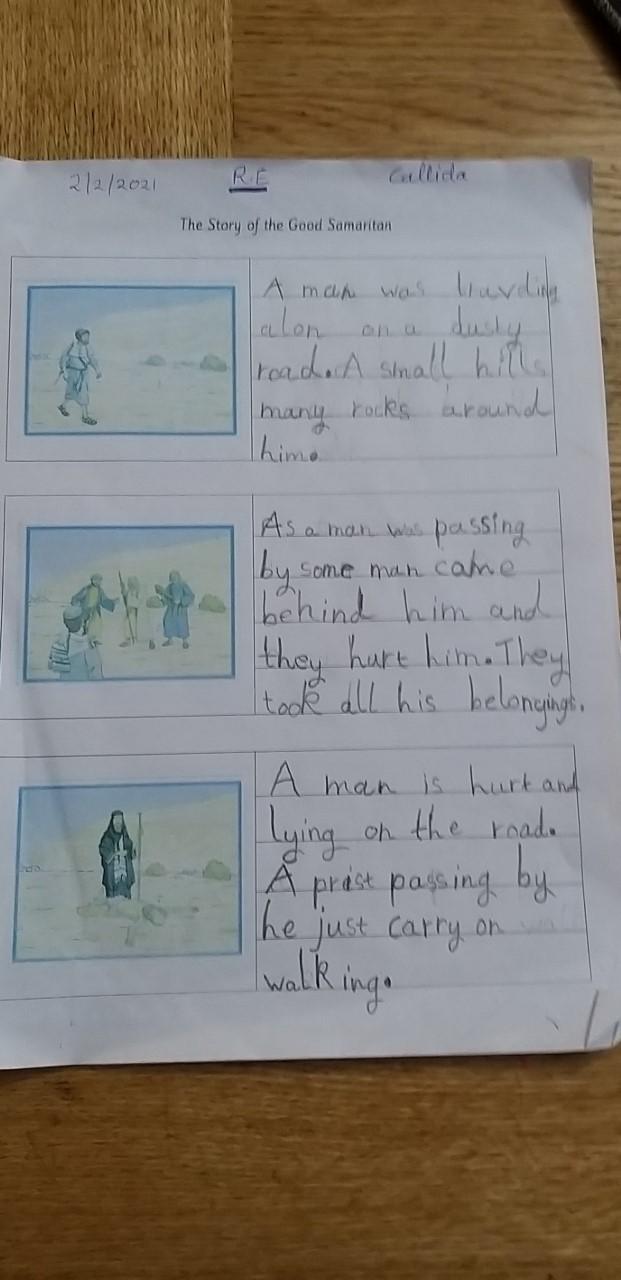 2/2/2021 R.E Callida
The Story of the Good Samaritan
A man was
alon on a dusty
road. A small hills
many rocks around
him.
As a man was passing
by some man came
behind him and
they hurt him. They
took all his belongings.
A man is hurt and
lying on the road.
A prist passing by
he just carry on
walking.